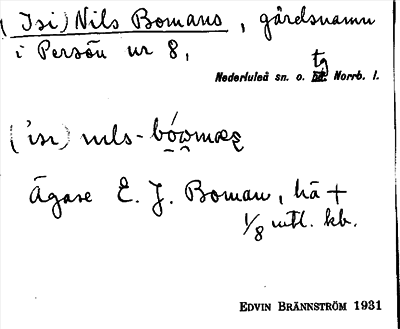 (Isi) Nils Bomans, gårdsnamn
i Persön nr 8,
tg
Nederluleå sn. o. Norrb. l.
Ägare E. J. Boman, hä +
1/8 mtl. kb.
EDVIN BRÄNNSTRÖM 1931